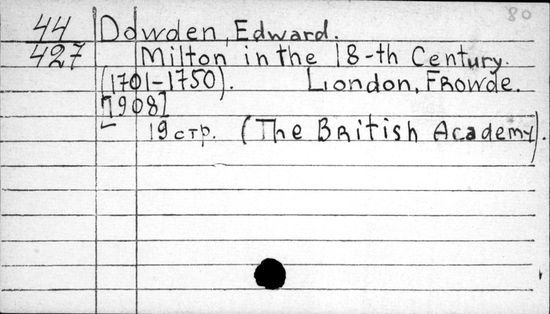 80
44 Dowden, Edward.
427 Milton in the 18-th Century.
(1701-1750). London, Frowde.
[1908]
19 стр. (The British Academy).